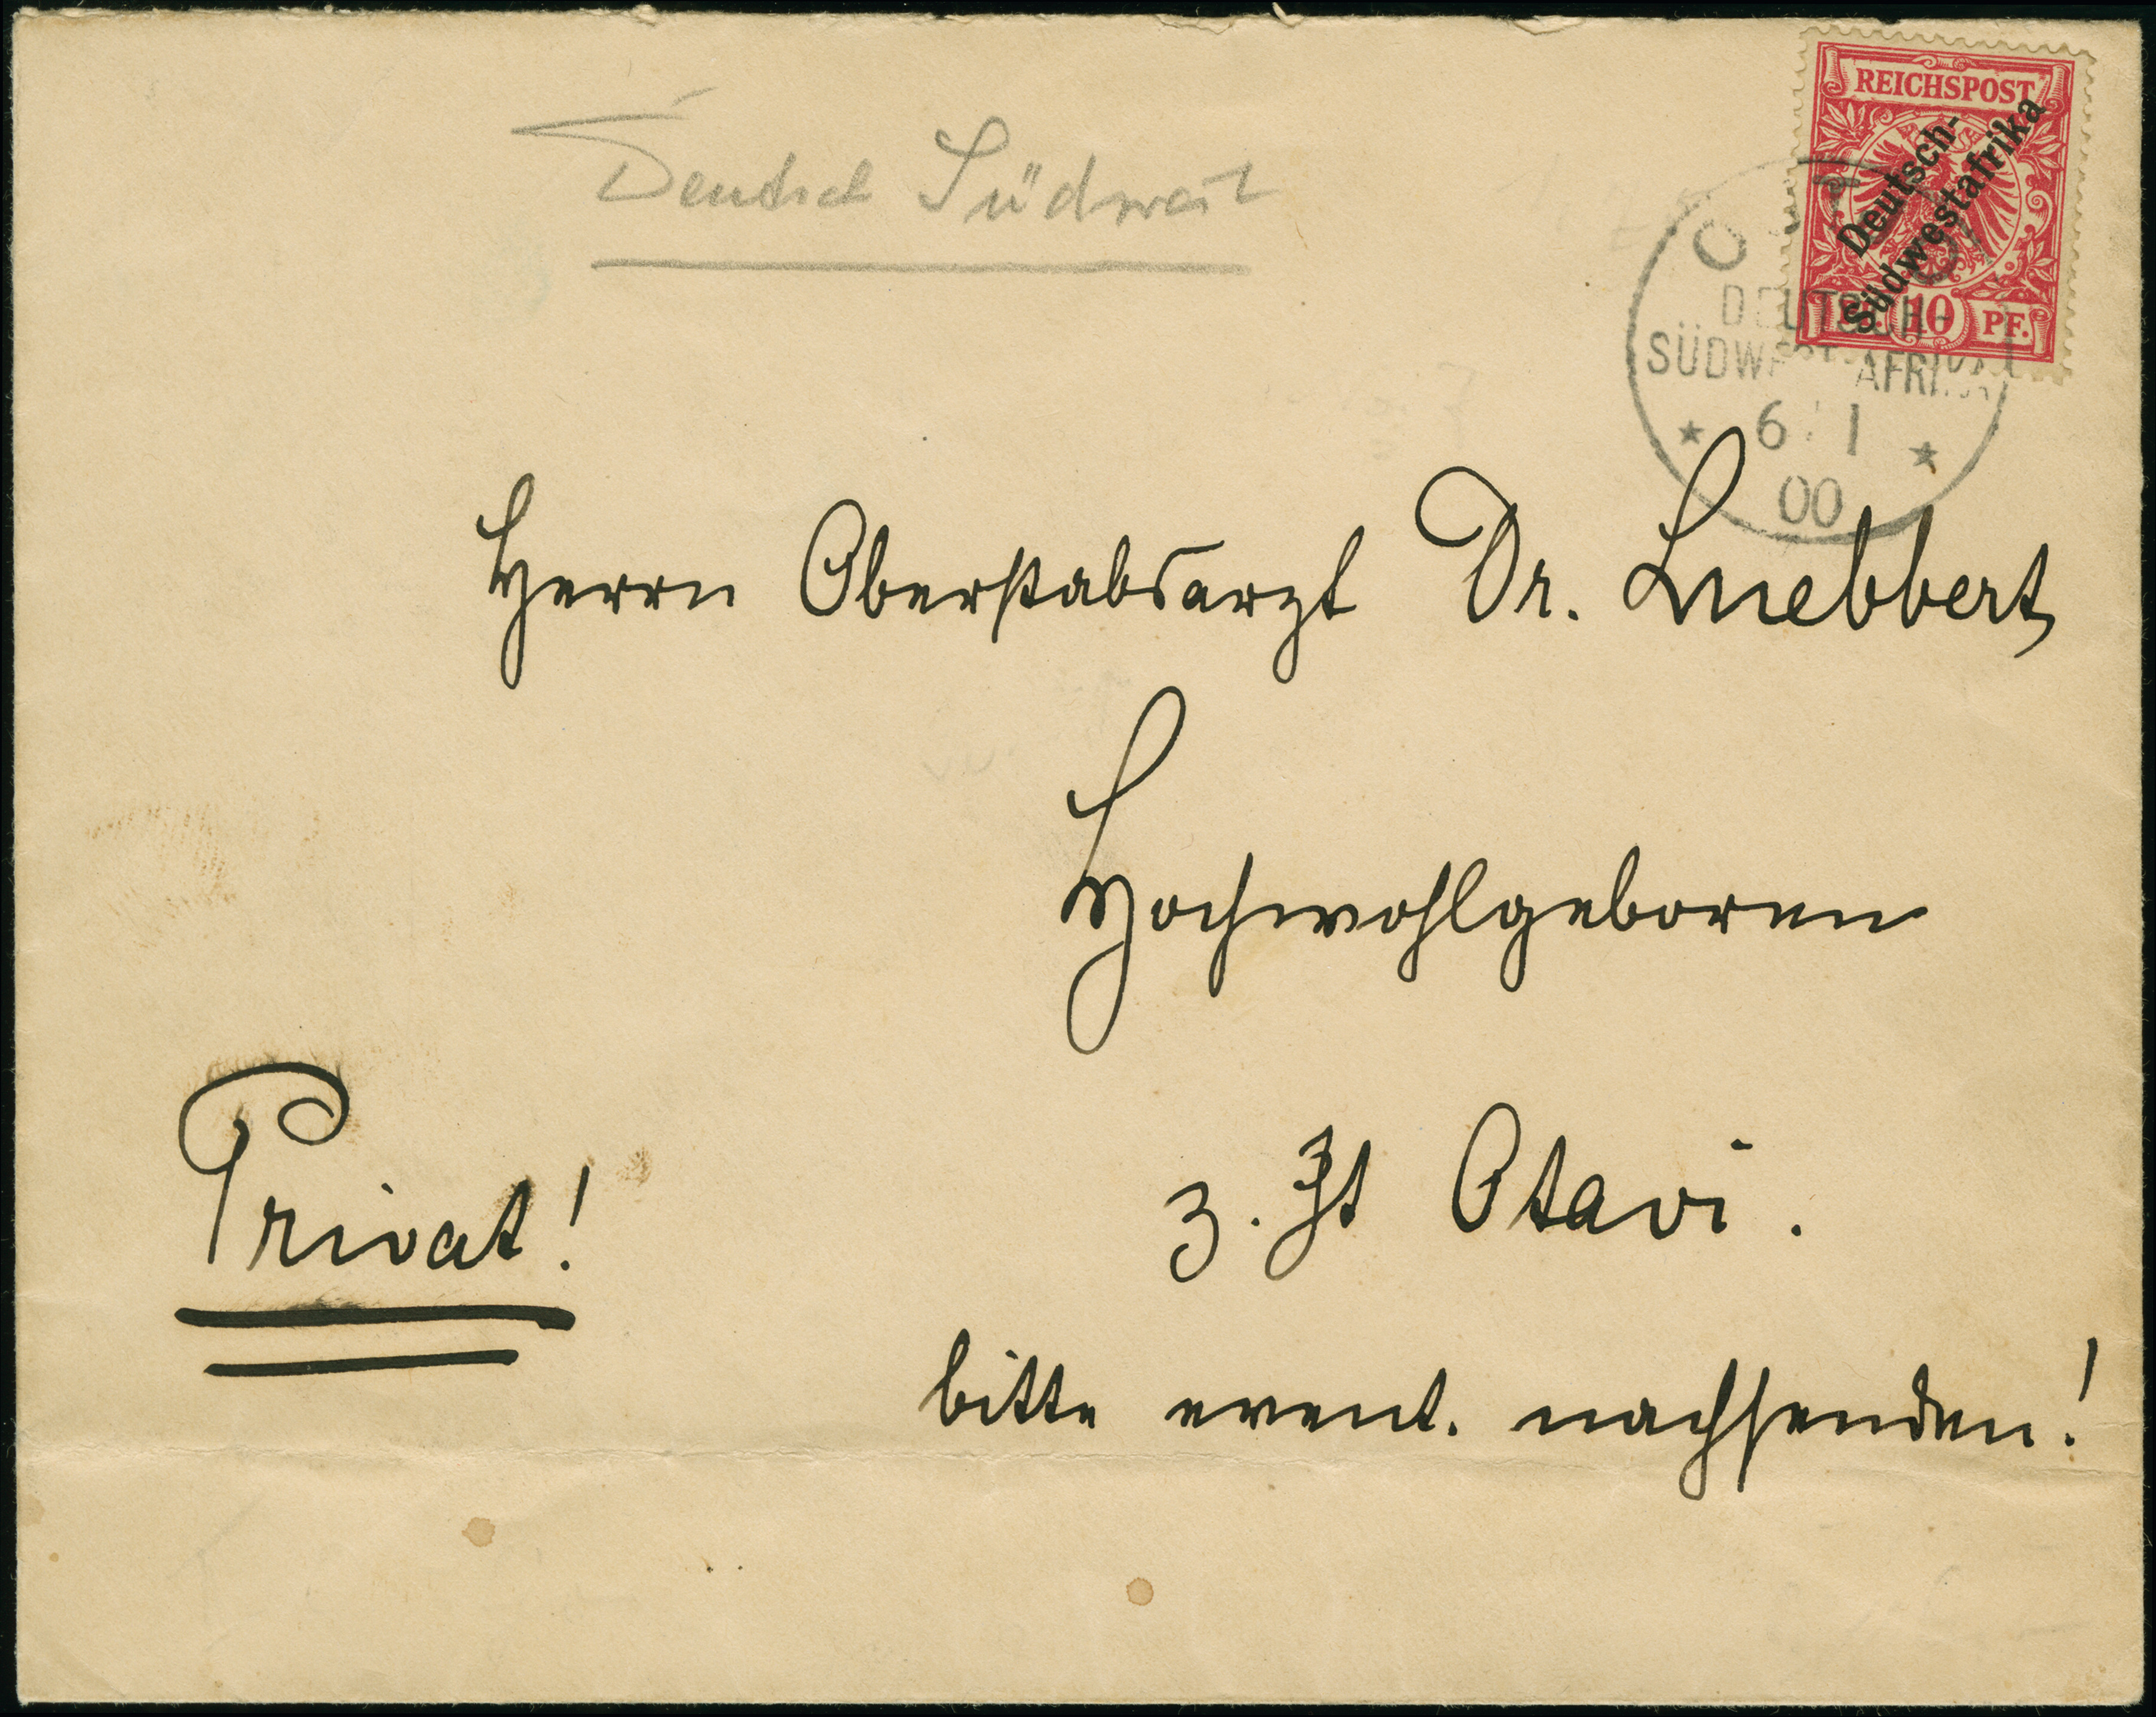 Deutsch Südwest
REICHSPOST
Deutsch-
Südwestafrika
10 PF.
DEUTSCH-
SÜDWEST AFRIKA
* 6 1 *
00
Herrn Oberstabsarzt Dr. Luebbert
Hochwohlgeboren
Privat!
z. Zt Otavi.
bitte event. nachsenden!